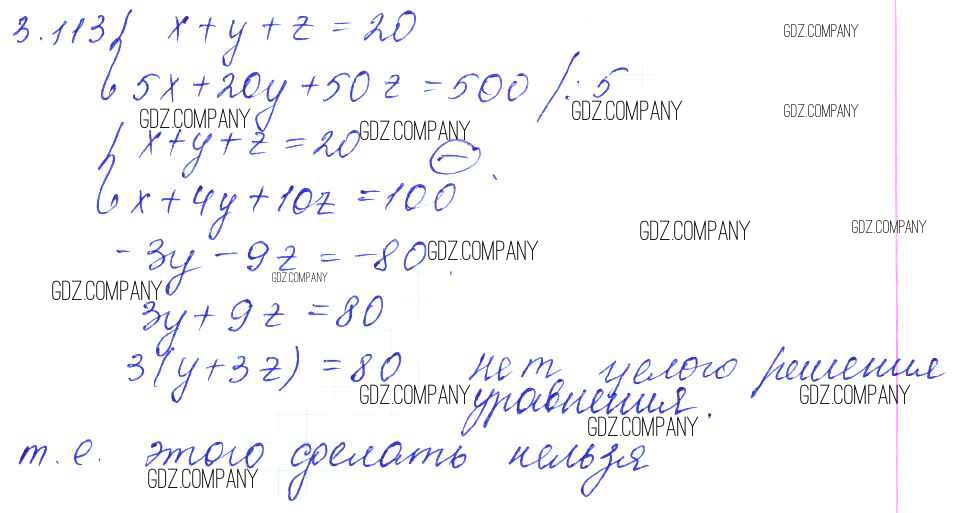 3.113 { x + y + z = 20 GDZ.COMPANY
5x + 20y + 50z = 500 /: 5
GDZ.COMPANY GDZ.COMPANY GDZ.COMPANY GDZ.COMPANY
{ x + y + z = 20 (−)
x + 4y + 10z = 100
GDZ.COMPANY GDZ.COMPANY
-3y - 9z = -80 GDZ.COMPANY
GDZ.COMPANY GDZ.COMPANY
3y + 9z = 80
3(y + 3z) = 80 нет целого решения
GDZ.COMPANY уравнения. GDZ.COMPANY
GDZ.COMPANY
т. е. этого сделать нельзя
GDZ.COMPANY